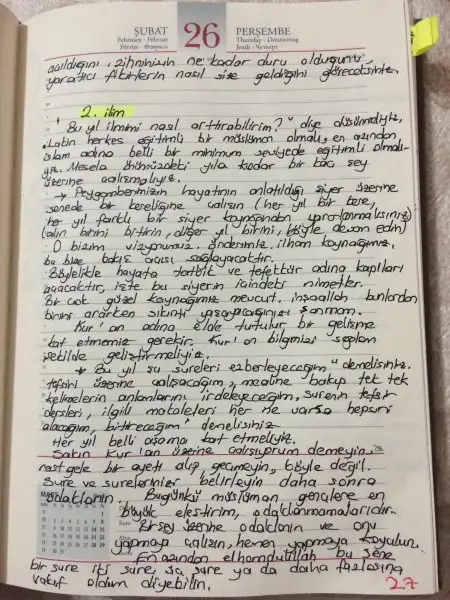 ŞUBAT 26 PERŞEMBE
February - Februar Thursday - Donnerstag
Février - Февраль Jeudi - Четверг
açıldığını, zihninizin ne kadar duru olduğunu,
yaratıcı fikirlerin nasıl size geldiğini göreceksiniz.
2. ilim
"Bu yıl ilmimi nasıl arttırabilirim?" diye düşünmeliyiz,
herkes eğitimli bir müslüman olmalı, en azından,
islam adına belli bir minimum seviyede eğitimli olmalı-
yız. Mesela önümüzdeki yıla kadar bir kaç şey
üzerine çalışmalıyız.
→ Peygamberimizin hayatının anlatıldığı siyer üzerine
senede bir kereliğine çalışın (her yıl bir kere,
her yıl farklı bir siyer kaynağından yararlanmalısınız)
(alın birini bitirin, diğer yıl birini, böyle devam edin)
O bizim vizyonumuz. Önderimiz, ilham kaynağımız,
bu bize bakış açısı sağlayacaktır.
Böylelikle hayata tatbit ve tefekkür adına kapıları
açacaktır, işte bu siyerin içindeki nimetler.
Bir çok güzel kaynağımız mevcut. inşaallah bunlardan
birini ararken sıkıntı yaşayacağınızı sanmam.
Kur'an adına elde tutulur bir gelişme
kat etmemiz gerekir. Kur'an bilgimizi sağlam
şekilde geliştirmeliyiz.
"Bu yıl şu sureleri ezberleyeceğim" demelisiniz.
tefsiri üzerine çalışacağım, mealine bakıp tek tek
kelimelerin anlamlarını irdeleyeceğim, surenin tefsir
dersleri, ilgili makaleleri her ne varsa hepsini
alacağım, bitireceğim" demelisiniz.
Her yıl belli aşama kat etmeliyiz.
Sakın Kur'an üzerine çalışıyorum demeyin,
rast gele bir ayeti alıp geçmeyin, böyle değil.
Sure ve surelerinizi belirleyin daha sonra
odaklanın. Bugünkü müslüman gençlere en
büyük eleştirim, odaklanmamalarıdır.
Birşey üzerine odaklanın ve onu
yapmaya çalışın, hemen yapmaya koyulun.
En azından elhamdulillah bu sene
bir sure iki sure, üç sure ya da daha fazlasına
vakıf oldum diyebilin.
27